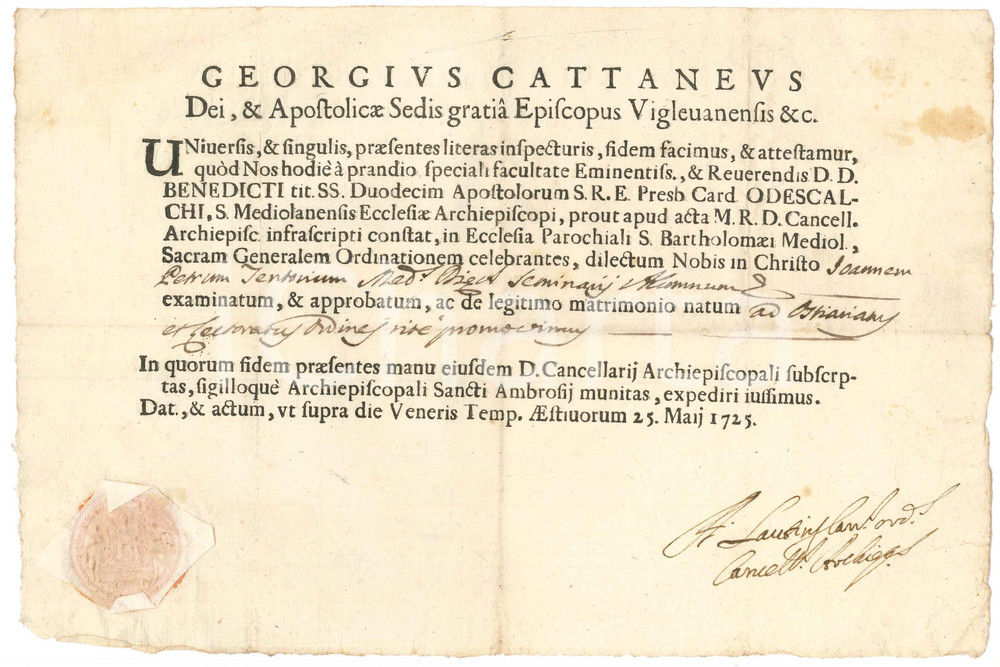 GEORGIVS CATTANEVS
Dei, & Apostolicæ Sedis gratiâ Episcopus Vigleuanensis &c.
UNiuersis, & singulis, præsentes literas inspecturis, fidem facimus, & attestamur,
quòd Nos hodie à prandio speciali facultate Eminentiss., & Reuerendis D. D.
BENEDICTI tit. SS. Duodecim Apostolorum S. R. E. Presb Card ODESCAL-
CHI, S. Mediolanensis Ecclesiæ Archiepiscopi, prout apud acta M. R. D. Cancell.
Archiepisc. infrascripti constat, in Ecclesia Parochiali S. Bartholomæi Mediol.,
Sacram Generalem Ordinationem celebrantes, dilectum Nobis in Christo Joannem
Petrum Med. Seminarij Alumnum
examinatum, & approbatum, ac de legitimo matrimonio natum ad Ostiariatus
et Lectoratus Ordines rite promovimus
In quorum fidem præsentes manu eiusdem D. Cancellarij Archiepiscopali subscrp-
tas, sigilloquè Archiepiscopali Sancti Ambrosij munitas, expediri iussimus.
Dat., & actum, vt supra die Veneris Temp. Æstiuorum 25. Maij 1725.